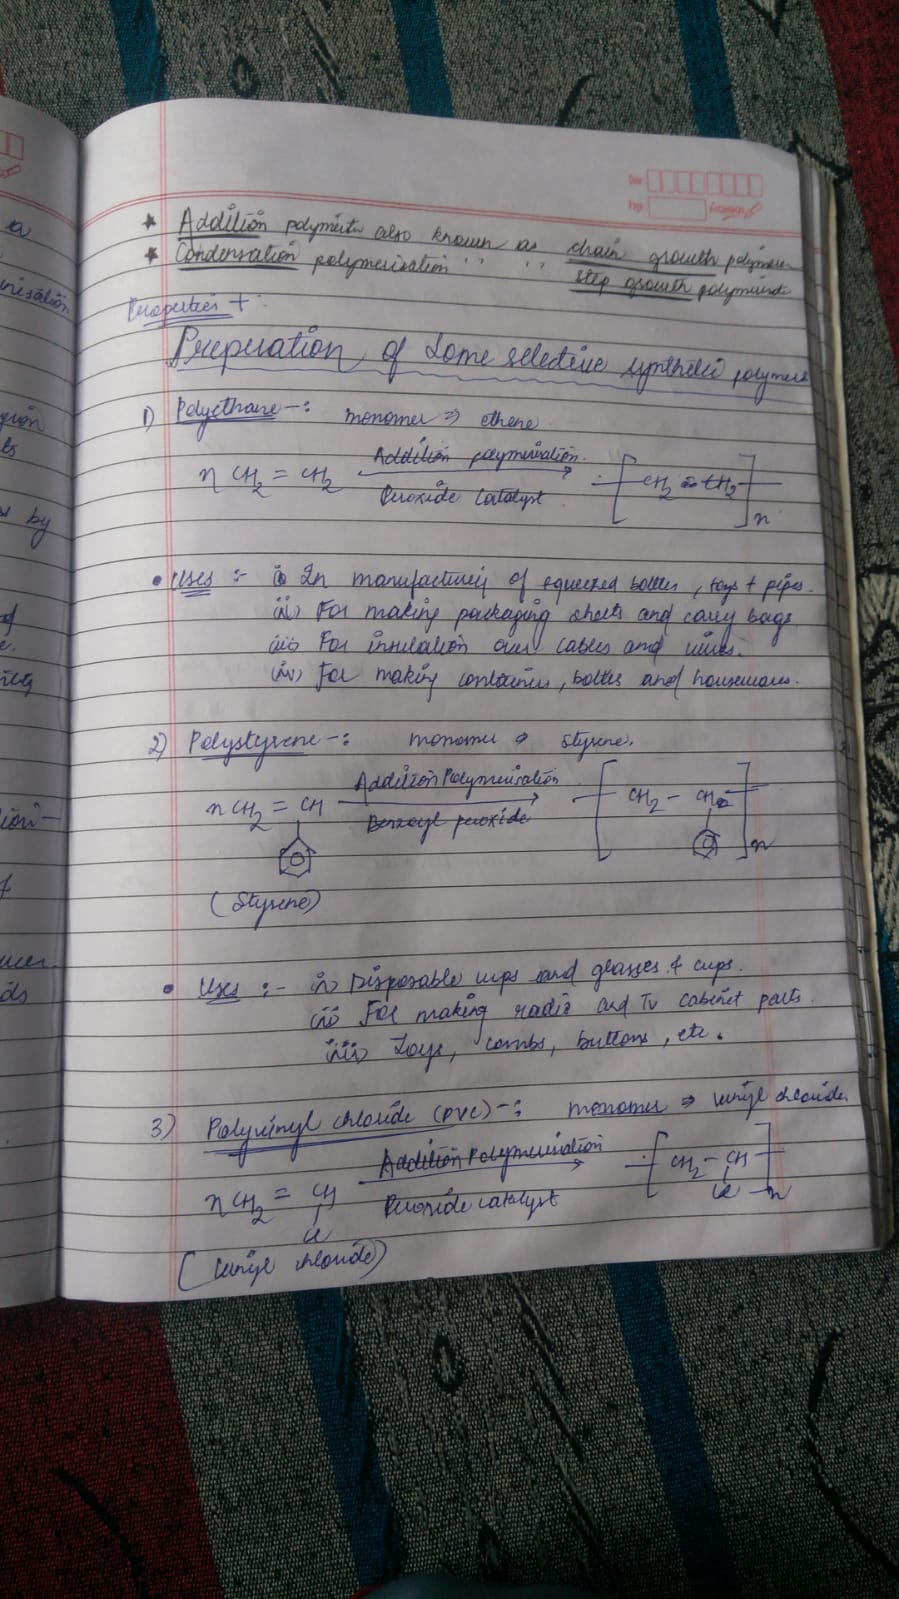 a
Date
Page
★ Addition polymer also known as chain growth polymer
★ Condensation polymerisation " " " step growth polymerist
nisation
Properties + :
Preperation of Some selective synthetic polymers
1) Polyethane -: monomer ⇒ ethene
n CH2 = CH2 Addition polymerisation Peroxide Catalyst [ CH2 - CH2 ]n
by
• Uses :- i) In manufacturing of squeezed bottles, toys + pipes.
(ii) For making packaging sheets and carry bags.
(iii) For insulation over cables and wires.
(iv) For making containers, bottles and housewares.
2) Polystyrene -: monomer ⇒ Styrene.
n CH2 = CH Addition Polymerisation Benzoyl peroxide [ CH2 - CH ]n
(Styrene)
• Uses :- (i) Disposable cups and glasses & cups.
(ii) For making radio and Tv cabinet parts.
(iii) Toys, combs, buttons, etc.
3) Polyvinyl chloride (PVC) -: monomer ⇒ vinyl chloride
n CH2 = CH Addition Polymerisation Peroxide catalyst [ CH2 - CH ]n
Cl Cl
(vinyl chloride)